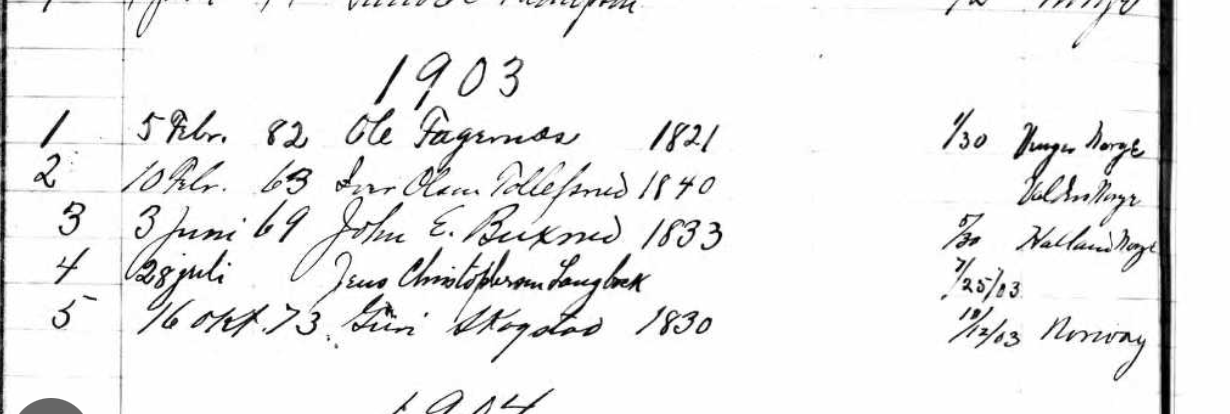 Thompson 
1903
1 5 Febr. 82 Ole Fagernæs 1821 1/30 Norge
2 10 Febr. 63 Iver Olsen Tollefsrud 1840 Valders Norge
3 3 Juni 69 John E. Buxrud 1833 5/30 Halland Norge
4 28 juli Jens Christophersen Langbek 7/25/03
5 16 Okt. 73 Guri Skogstad 1830 10/12/03 Norway
1904